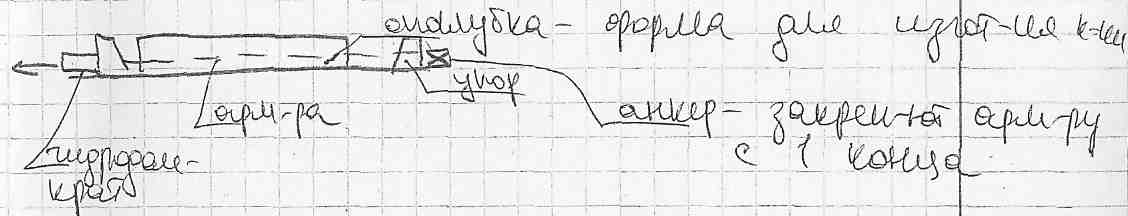 опалубка – форма для изгот-ия к-ции
упор
арм-ра
анкер – закреп-ют арм-ру
с 1 конца
гидродом-
крат